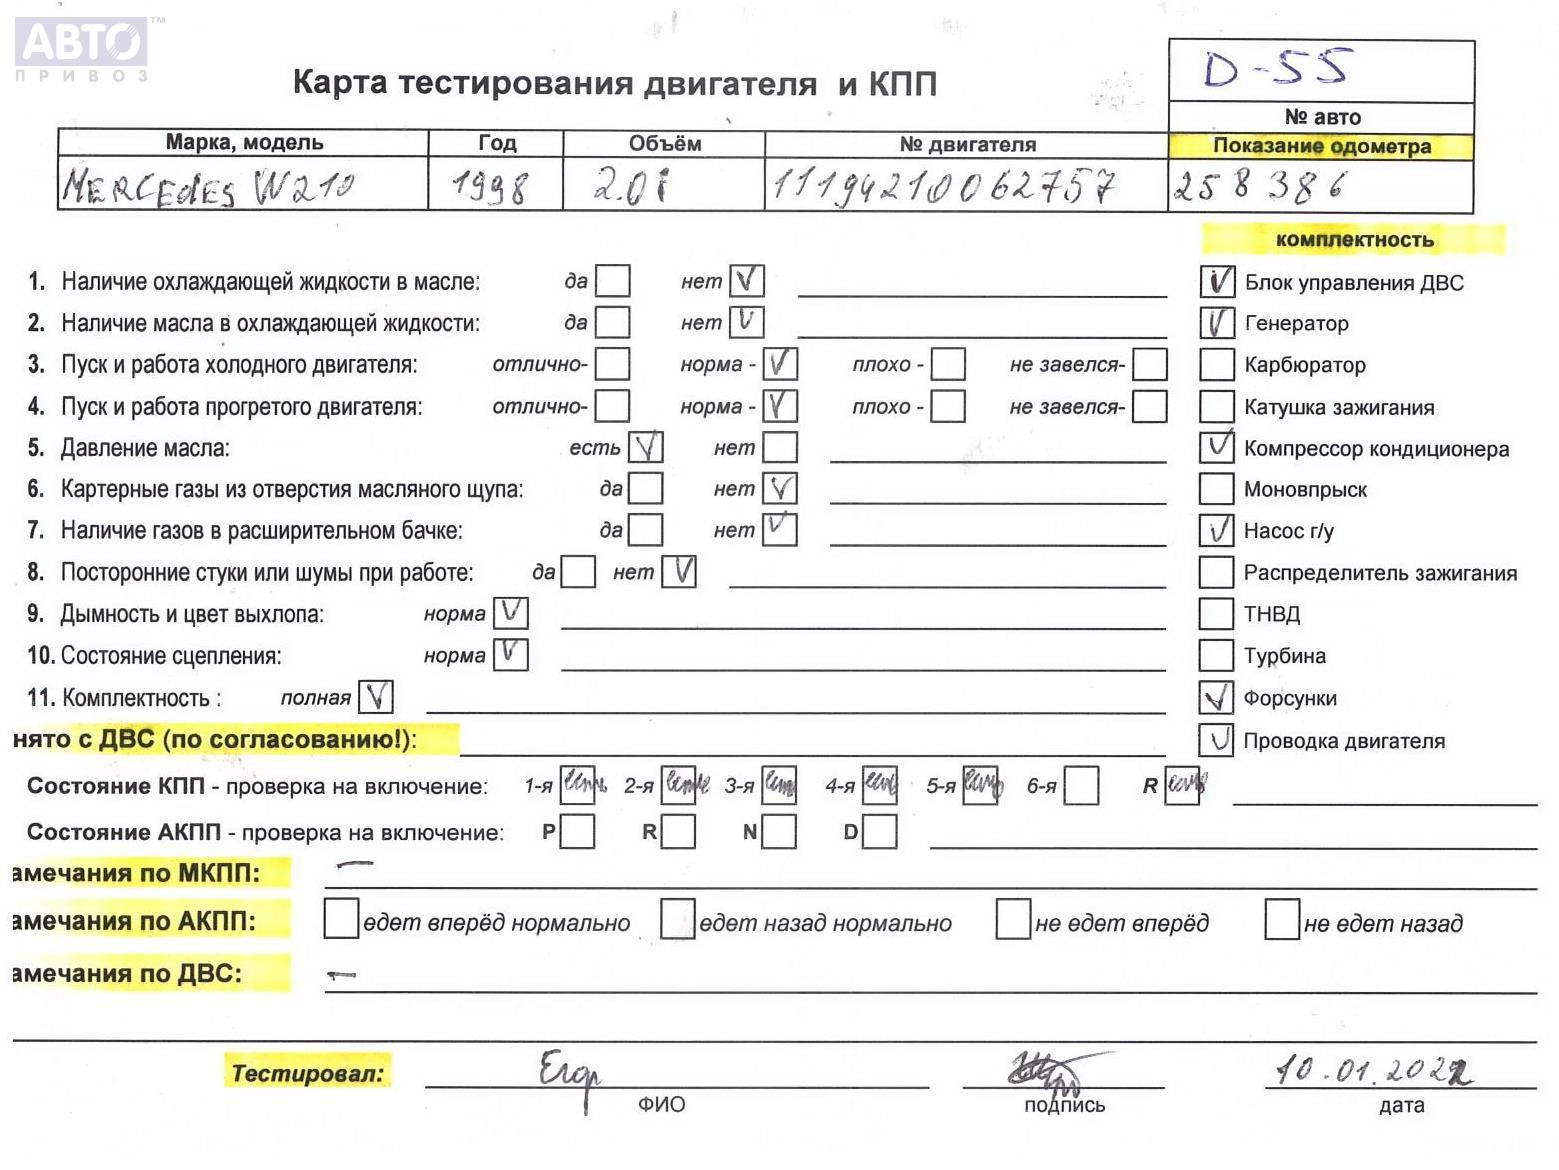 АВТО™
ПРИВОЗ
D-55
Карта тестирования двигателя и КПП
№ авто
Марка, модель Год Объём № двигателя Показание одометра
MERCEDES W210 1998 2.0i 11194210062757 258386
комплектность
1. Наличие охлаждающей жидкости в масле: да нет V V Блок управления ДВС
2. Наличие масла в охлаждающей жидкости: да нет V V Генератор
3. Пуск и работа холодного двигателя: отлично- норма - V плохо - не завелся- Карбюратор
4. Пуск и работа прогретого двигателя: отлично- норма - V плохо - не завелся- Катушка зажигания
5. Давление масла: есть V нет V Компрессор кондиционера
6. Картерные газы из отверстия масляного щупа: да нет V Моновпрыск
7. Наличие газов в расширительном бачке: да нет V V Насос г/у
8. Посторонние стуки или шумы при работе: да нет V Распределитель зажигания
9. Дымность и цвет выхлопа: норма V ТНВД
10. Состояние сцепления: норма V Турбина
11. Комплектность : полная V V Форсунки
нято с ДВС (по согласованию!): V Проводка двигателя
Состояние КПП - проверка на включение: 1-я есть 2-я есть 3-я есть 4-я есть 5-я есть 6-я R есть
Состояние АКПП - проверка на включение: P R N D
амечания по МКПП: —
амечания по АКПП: едет вперёд нормально едет назад нормально не едет вперёд не едет назад
амечания по ДВС: —
Тестировал: Егор 10.01.2022
ФИО подпись дата